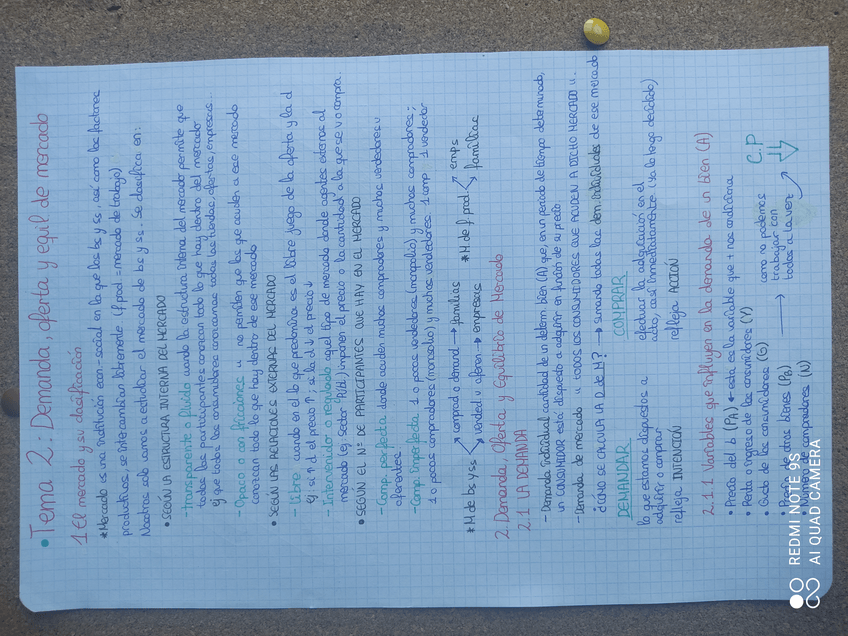 • Tema 2: Demanda, oferta y equil de mercado
1 El mercado y su clasificación
* Mercado es una institución econ-social en la que los bs y ss, así como los factores
productivos, se intercambian libremente (f. prod = mercado de trabajo)
Nosotros solo vamos a estudiar el mercado de bs y ss. Se clasifica en:
• SEGÚN LA ESTRUCTURA INTERNA DEL MERCADO
- transparente o fluido cuando la estructura interna del mercado permite que
todos los participantes conozcan todo lo que hay dentro del mercado
ej que todos los consumidores conozcan todas las tiendas, ofertas, empresas...
- Opaco o con fricciones no permiten que los que acuden a ese mercado
conozcan todo lo que hay dentro de ese mercado
• SEGÚN LAS RELACIONES EXTERNAS DEL MERCADO
- Libre cuando en él lo que predomina es el libre juego de la oferta y la d
ej si ↑ d, el precio ↑; si la d ↓ el precio ↓
- Intervenido o regulado aquel tipo de mercado donde agentes externos al
mercado (ej sector Púb.) imponen el precio o la cantidad a la que se v o compra.
• SEGÚN EL Nº DE PARTICIPANTES QUE HAY EN EL MERCADO
- Comp. perfecta donde acuden muchos compradores y muchos vendedores u
oferentes
- Comp. imperfecta 1 o pocos vendedores (monopolio) y muchos compradores;
1 o pocos compradores (monosolio) y muchos vendedores. 1 comp 1 vendedor
* M de bs y ss
comprad o demand → familias
vended u oferen → empresas
* M de f. prod
emps
familias
2 Demanda, Oferta y Equilibrio de Mercado
2.1 LA DEMANDA
- Demanda individual cantidad de un determ bien (A) que en un periodo de tiempo determinado,
un CONSUMIDOR está dispuesto a adquirir en función de su precio
- Demanda de mercado TODOS LOS CONSUMIDORES QUE ACUDEN A DICHO MERCADO
¿CÓMO SE CALCULA LA D de M? → sumando todas las dem. individuales de ese mercado
DEMANDAR
lo que estamos dispuestos a
adquirir o comprar
refleja INTENCIÓN
COMPRAR
efectuar la adquisición en el
acto, casi inmediatamente (ya lo tengo decidido)
refleja ACCIÓN
2.1.1 Variables que influyen en la demanda de un bien (A)
• Precio del b (PA) ← esta es la variable que + nos condiciona
• Renta o ingreso de los consumidores (Y)
• Gusto de los consumidores (G)
• Precio de otros bienes (PB)
• Número de compradores (N)
→
como no podemos
trabajar con
todas a la vez
C.P
REDMI NOTE 9S
AI QUAD CAMERA